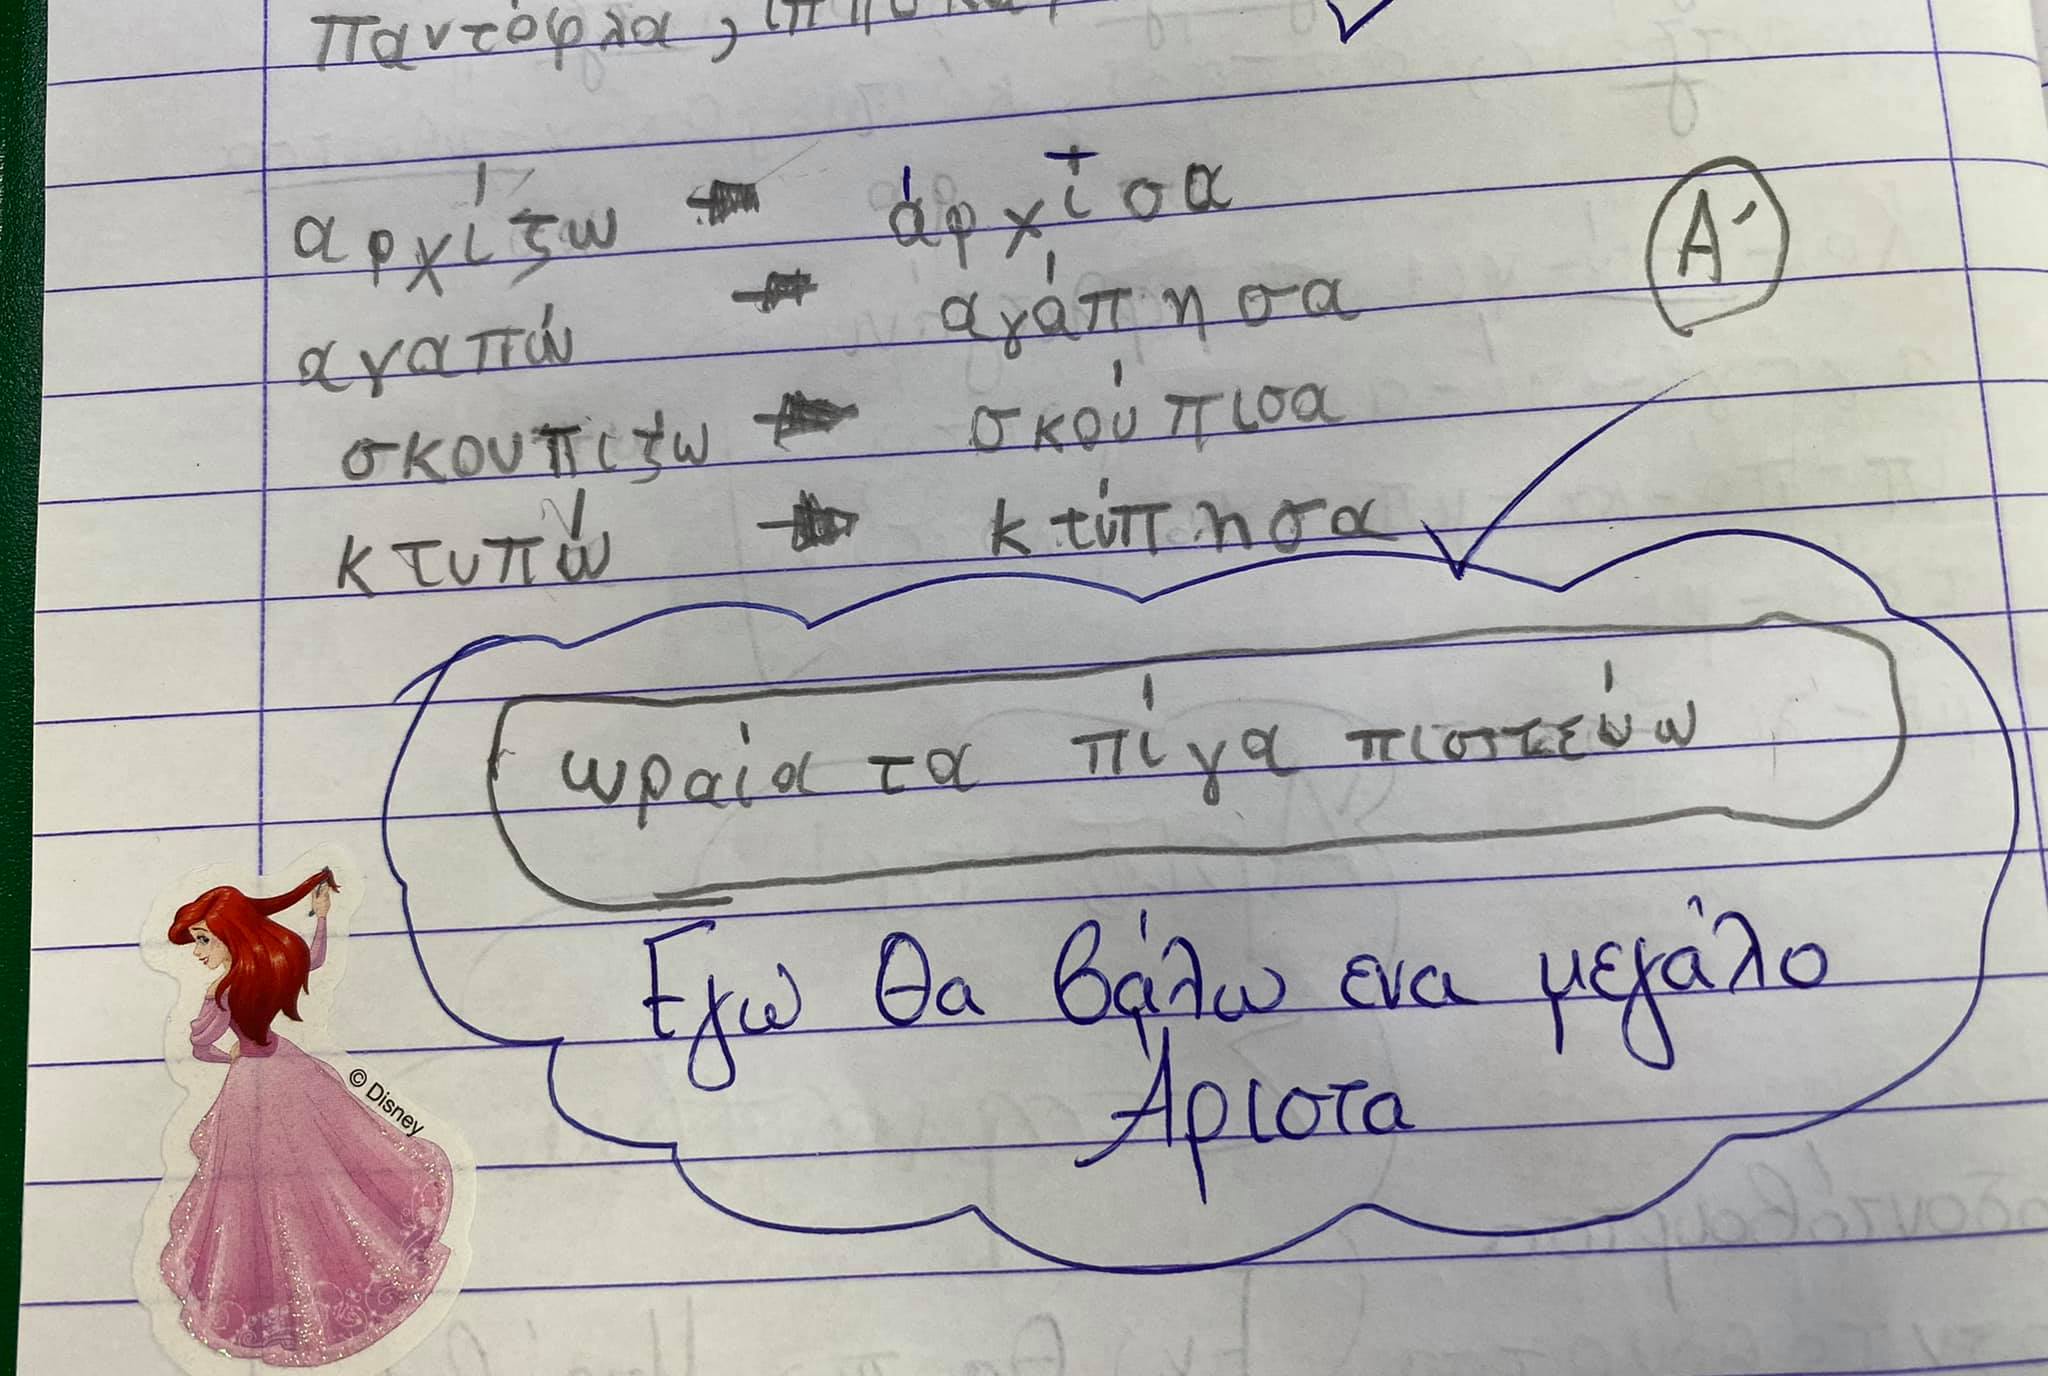 παντόφλα,
αρχίζω → άρχισα
Α'
αγαπώ → αγάπησα
σκουπιζω → σκούπισα
κτυπώ → κτύπησα
ωραία τα πίγα πιστεύω
Εγω θα βάλω ενα μεγάλο
Άριστα
© Disney